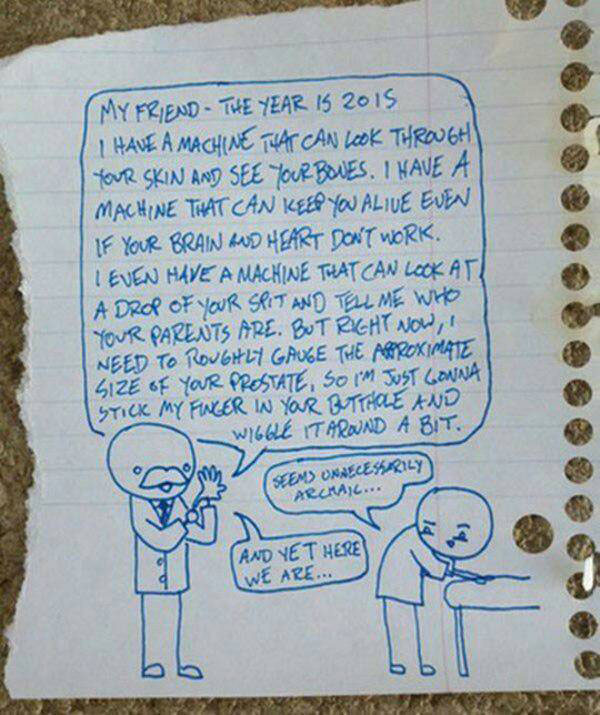 MY FRIEND - THE YEAR IS 2015
I HAVE A MACHINE THAT CAN LOOK THROUGH
YOUR SKIN AND SEE YOUR BONES. I HAVE A
MACHINE THAT CAN KEEP YOU ALIVE EVEN
IF YOUR BRAIN AND HEART DON'T WORK.
I EVEN HAVE A MACHINE THAT CAN LOOK AT
A DROP OF YOUR SPIT AND TELL ME WHO
YOUR PARENTS ARE. BUT RIGHT NOW, I
NEED TO ROUGHLY GAUGE THE APPROXIMATE
SIZE OF YOUR PROSTATE, SO I'M JUST GONNA
STICK MY FINGER IN YOUR BUTTHOLE AND
WIGGLE IT AROUND A BIT.
SEEMS UNNECESSARILY
ARCHAIC...
AND YET HERE
WE ARE...